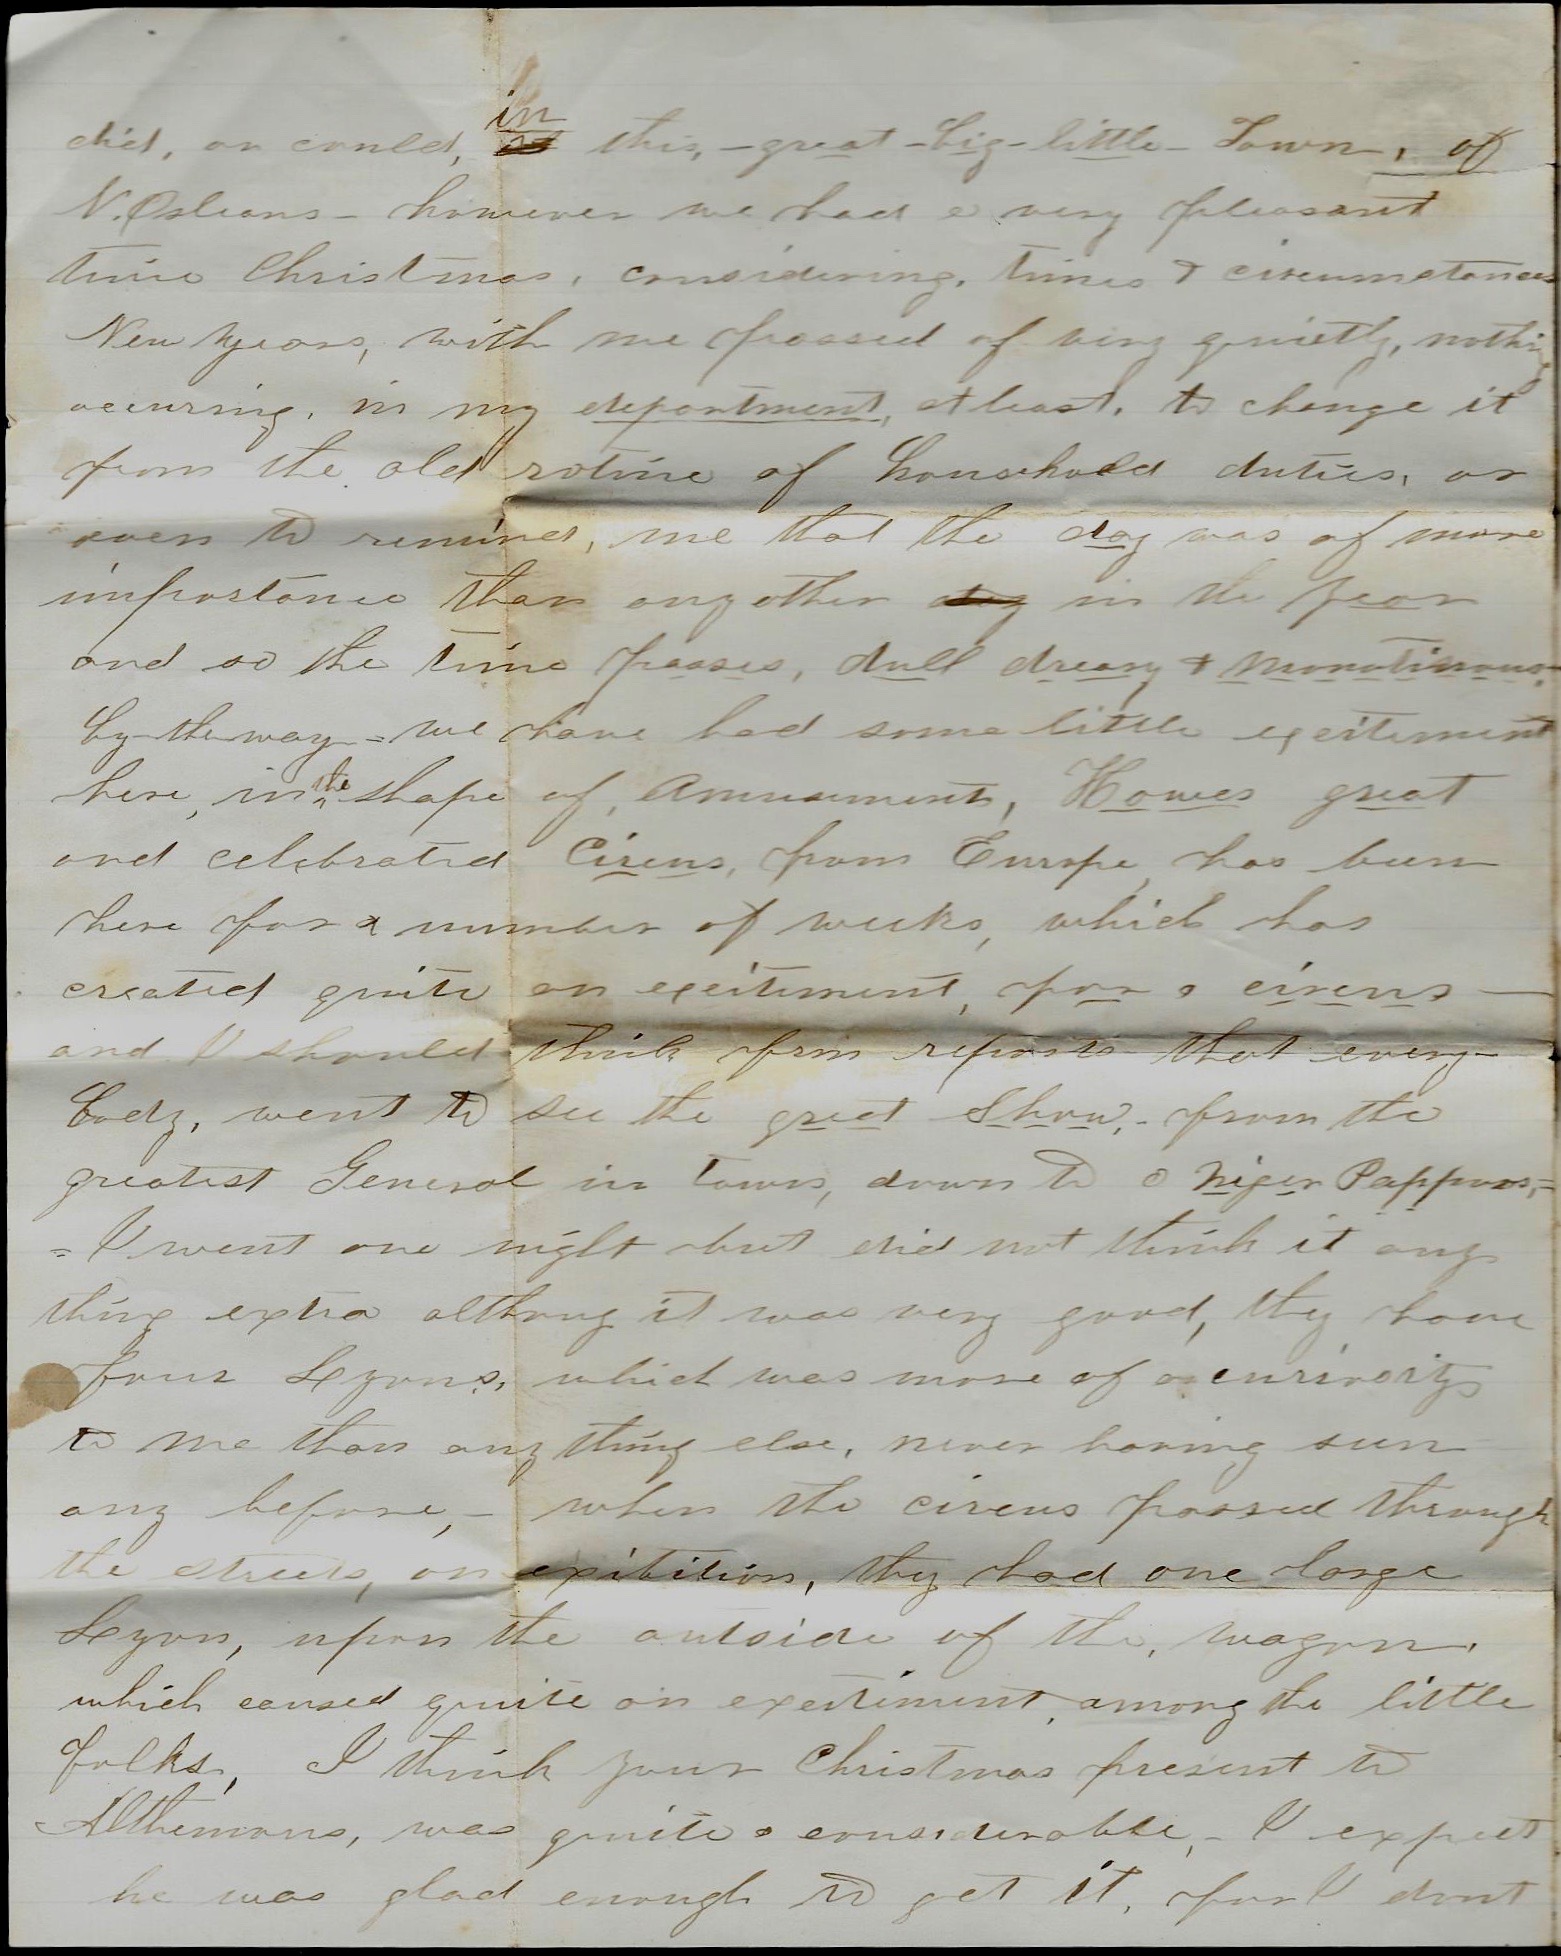 did, or could, in this, - great - big - little - Town, of
N. Orleans - however we had a very pleasant
time Christmas, considering, times & circumstances
New years, with me passed of very quietly, nothing
occuring, in my department, at least, to change it
from the old rotine of household duties, or
even to remind, me that the day was of more
importance than any other day in the year
and so the time passes, dull dreary & monotinous,
by-the-way - we have had some little exeitement
here, in the shape of, Amusements, Howes great
and celebrated Circus, from Europe, has been
here for a number of weeks, which has
created quite an exeitement, for a circus -
and I should think from reports that every-
body, went to see the great Show, - from the
greatest General in town, down to a Niger Pappoos, =
= I went one night but did not think it any
thing extra althoug it was very good, they have
four Lyons, which was more of a curiosity
to me than any thing else, never having seen
any before, - when the circus passed through
the streets, on exibition, they had one large
Lyon, upon the outside of the, wagon,
which caused quite an exeitiment, among the little
folks, I think your Christmas present to
Althemons, was quite a considerable, - I expect
he was glad enough to get it, for I dont